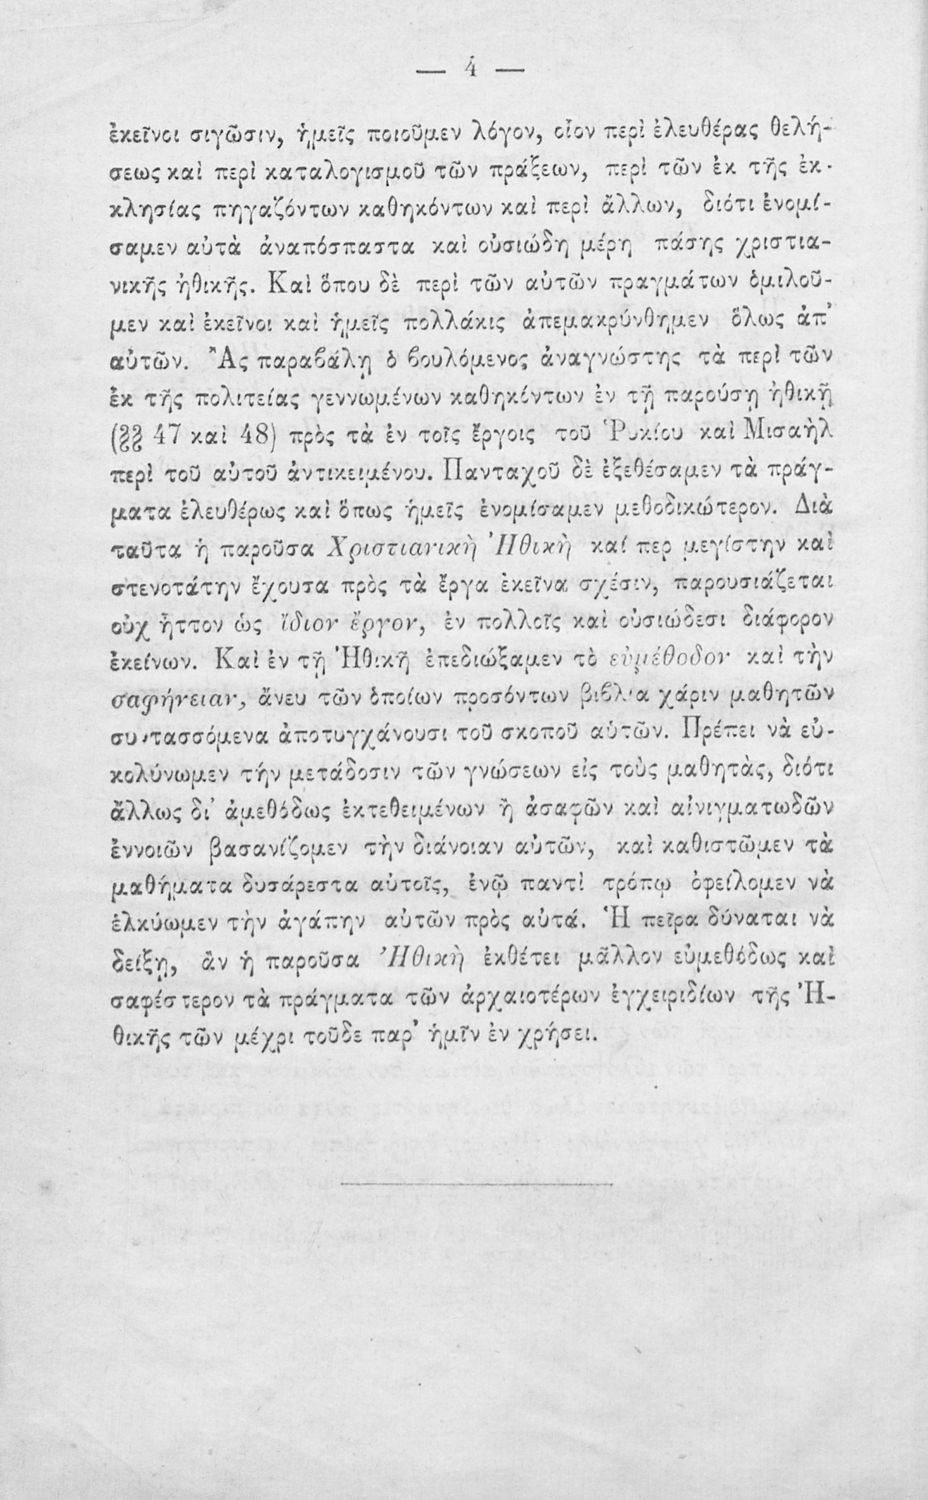 — 4 —
ἐκεῖνοι σιγῶσιν, ἡμεῖς ποιοῦμεν λόγον, οἷον περὶ ἐλευθέρας θελή-
σεως καὶ περὶ καταλογισμοῦ τῶν πράξεων, περὶ τῶν ἐκ τῆς ἐκ-
κλησίας πηγαζόντων καθηκόντων καὶ περὶ ἄλλων, διότι ἐνομί-
σαμεν αὐτὰ ἀναπόσπαστα καὶ οὐσιώδη μέρη πάσης χριστια-
νικῆς ἠθικῆς. Καὶ ὅπου δὲ περὶ τῶν αὐτῶν πραγμάτων ὁμιλοῦ-
μεν καὶ ἐκεῖνοι καὶ ἡμεῖς πολλάκις ἀπεμακρύνθημεν ὅλως ἀπ’
αὐτῶν. Ἂς παραβάλῃ ὁ βουλόμενος ἀναγνώστης τὰ περὶ τῶν
ἐκ τῆς πολιτείας γεννωμένων καθηκόντων ἐν τῇ παρούσῃ ἠθικῇ
(§§ 47 καὶ 48) πρὸς τὰ ἐν τοῖς ἔργοις τοῦ Ῥυκίου καὶ Μισαὴλ
περὶ τοῦ αὐτοῦ ἀντικειμένου. Πανταχοῦ δὲ ἐξεθέσαμεν τὰ πράγ-
ματα ἐλευθέρως καὶ ὅπως ἡμεῖς ἐνομίσαμεν μεθοδικώτερον. Διὰ
ταῦτα ἡ παροῦσα Χριστιανικὴ Ἠθικὴ καί περ μεγίστην καὶ
στενοτάτην ἔχουσα πρὸς τὰ ἔργα ἐκεῖνα σχέσιν, παρουσιάζεται
οὐχ ἧττον ὡς ἴδιον ἔργον, ἐν πολλοῖς καὶ οὐσιώδεσι διάφορον
ἐκείνων. Καὶ ἐν τῇ Ἠθικῇ ἐπεδιώξαμεν τὸ εὐμέθοδον καὶ τὴν
σαφήνειαν, ἄνευ τῶν ὁποίων προσόντων βιβλία χάριν μαθητῶν
συντασσόμενα ἀποτυγχάνουσι τοῦ σκοποῦ αὑτῶν. Πρέπει νὰ εὐ-
κολύνωμεν τήν μετάδοσιν τῶν γνώσεων εἰς τοὺς μαθητὰς, διότι
ἄλλως δι’ ἀμεθόδως ἐκτεθειμένων ἢ ἀσαφῶν καὶ αἰνιγματωδῶν
ἐννοιῶν βασανίζομεν τὴν διάνοιαν αὐτῶν, καὶ καθιστῶμεν τὰ
μαθήματα δυσάρεστα αὐτοῖς, ἐνῷ παντὶ τρόπῳ ὀφείλομεν νὰ
ἑλκύωμεν τὴν ἀγάπην αὐτῶν πρὸς αὐτά. Ἡ πεῖρα δύναται νὰ
δείξῃ, ἂν ἡ παροῦσα Ἠθικὴ ἐκθέτει μᾶλλον εὐμεθόδως καὶ
σαφέστερον τὰ πράγματα τῶν ἀρχαιοτέρων ἐγχειριδίων τῆς Ἠ-
θικῆς τῶν μέχρι τοῦδε παρ’ ἡμῖν ἐν χρήσει.